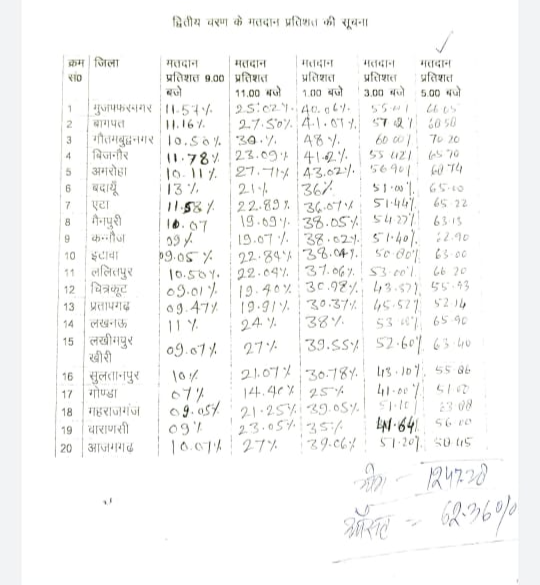 द्वितीय चरण के मतदान प्रतिशत की सूचना
क्रम सं० जिला मतदान प्रतिशत 9.00 बजे मतदान प्रतिशत 11.00 बजे मतदान प्रतिशत 1.00 बजे मतदान प्रतिशत 3.00 बजे मतदान प्रतिशत 5.00 बजे
1 मुजफ्फरनगर 11.57% 25.02% 40.06%
2 बागपत 11.16% 27.50% 41.07% 60.50
3 गौतमबुद्वनगर 10.50% 30.% 48% 60.00% 70.20
4 बिजनौर 11.78% 23.09% 41.2% 65.70
5 अमरोहा 10.11% 27.71% 43.02% 56.90% 60.74
6 बदायूँ 13% 21% 36% 51.00% 65.00
7 एटा 11.58% 22.89% 36.07% 51.44% 65.22
8 मैनपुरी 10.07 19.09% 38.05% 63.13
9 कन्नौज 09% 19.07% 38.02% 51.40%
10 इटावा 09.05% 22.84% 38.04% 50.80% 63.00
11 ललितपुर 10.50% 22.04% 37.06% 53.00% 66.20
12 चित्रकूट 09.01% 19.40% 30.98% 43.57% 55.93
13 प्रतापगढ़ 09.47% 19.91% 30.37% 45.52% 52.14
14 लखनऊ 11% 24% 38% 65.90
15 लखीमपुर खीरी 09.07% 27% 39.55% 52.60% 63.40
16 सुलतानपुर 10% 21.07% 30.78% 43.10% 55.86
17 गोण्डा 07% 14.40% 25% 41.00%
18 महराजगंज 09.05% 21.25% 39.05%
19 वाराणसी 09% 23.05% 35% 41.64% 56.00
20 आजमगढ़ 10.07% 27% 39.06% 51.20% 50.45
योग - 1247.20
औसत - 62.36%